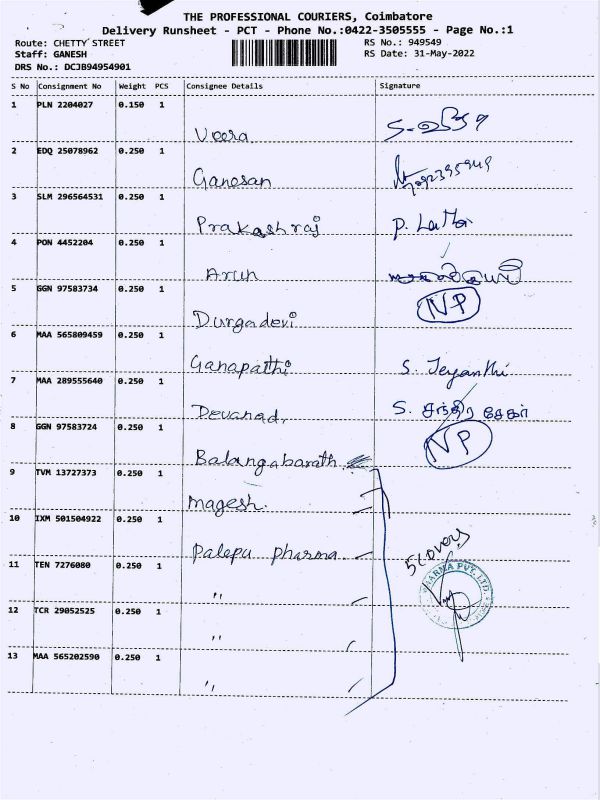 THE PROFESSIONAL COURIERS, Coimbatore
Delivery Runsheet - PCT - Phone No.:0422-3505555 - Page No.:1
Route: CHETTY STREET
RS No.: 949549
Staff: GANESH
RS Date: 31-May-2022
DRS No.: DCJB94954901
S No Consignment No Weight PCS Consignee Details Signature
1 PLN 2204027 0.150 1
Veera
2 EDQ 25078962 0.250 1
Ganesan
3 SLM 296564531 0.250 1
Prakashraj P. Latha
4 PON 4452204 0.250 1
Arun
5 GGN 97583734 0.250 1
Durgadevi NP
6 MAA 565809459 0.250 1
Ganapathi S. Jeyanthi
7 MAA 289555640 0.250 1
Devanadi S. சந்திர சேகர்
8 GGN 97583724 0.250 1
Balangabarath NP
9 TVM 13727373 0.250 1
Magesh.
10 IXM 501504922 0.250 1
Palepu pharma
5 covers
11 TEN 7276080 0.250 1
"
PHARMA PVT. LTD.
12 TCR 29052525 0.250 1
"
13 MAA 565202590 0.250 1
"